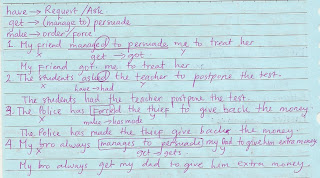 have → Request/Ask
get → (manage to) persuade
make → order/force
1. My friend managed to persuade me to treat her
x get → got y
My friend got me to treat her.
2. The students asked the teacher to postpone the test.
x have → had y
The students had the teacher postpone the test.
3. The Police has forced the thief to give back the money.
x make → has made y
The Police has made the thief give back the money.
4. My bro always manages to persuade my dad to give him extra money
x get → gets y
My bro always get my dad to give him extra money.